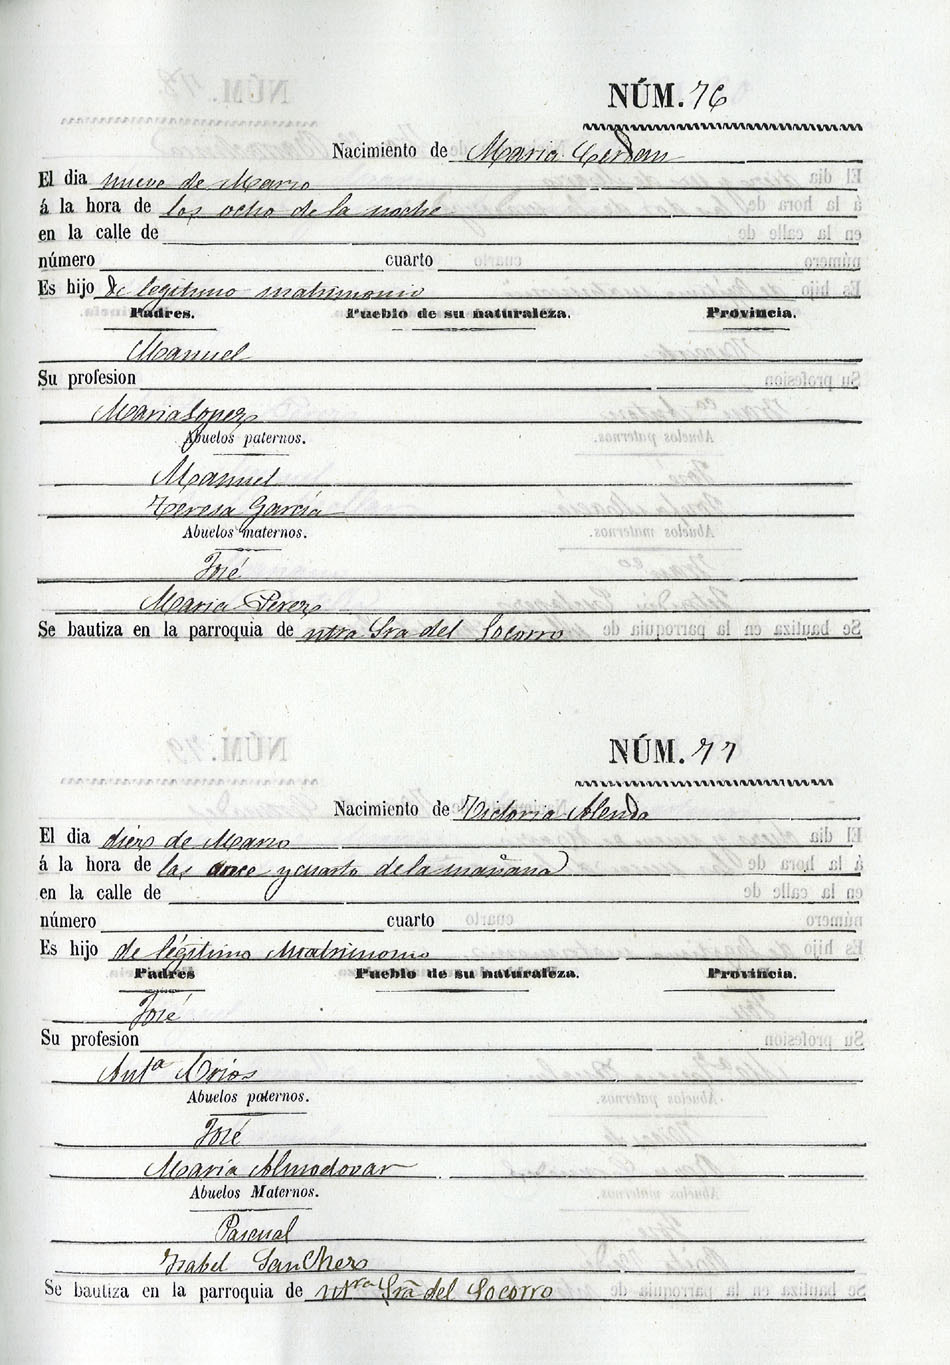 NÚM. 76
Nacimiento de Maria Cerdan
El dia nueve de Marzo
á la hora de las ocho de la noche
en la calle de
número cuarto
Es hijo de legitimo matrimonio
Padres. Pueblo de su naturaleza. Provincia.
Manuel
Su profesion
Maria Lopez
Abuelos paternos.
Manuel
Teresa García
Abuelos maternos.
José
Maria Perez
Se bautiza en la parroquia de ntra Sra del Socorro
NÚM. 77
Nacimiento de Victoria Alenda
El dia diez de Marzo
á la hora de las once y cuarto de la mañana
en la calle de
número cuarto
Es hijo de légitimo Matrimonio
Padres Pueblo de su naturaleza. Provincia.
José
Su profesion
Antª Orios
Abuelos paternos.
José
María Almodovar
Abuelos Maternos.
Pascual
Isabel Sanchez
Se bautiza en la parroquia de ntra Sra del Socorro